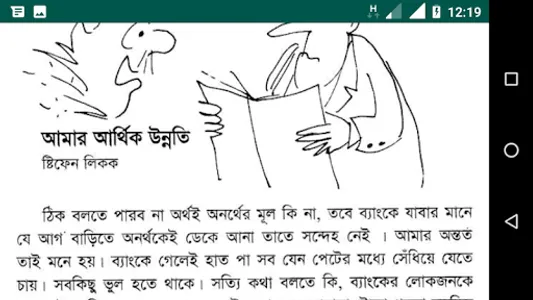 H 12:19
আমার আর্থিক উন্নতি
ষ্টিফেন লিকক
ঠিক বলতে পারব না অর্থই অনর্থের মূল কি না, তবে ব্যাংকে যাবার মানে
যে আগ বাড়িতে অনর্থকেই ডেকে আনা তাতে সন্দেহ নেই । আমার অন্তত
তাই মনে হয়। ব্যাংকে গেলেই হাত পা সব যেন পেটের মধ্যে সেঁধিয়ে যেতে
চায়। সবকিছু ভুল হতে থাকে। সত্যি কথা বলতে কি, ব্যাংকের লোকজনকে